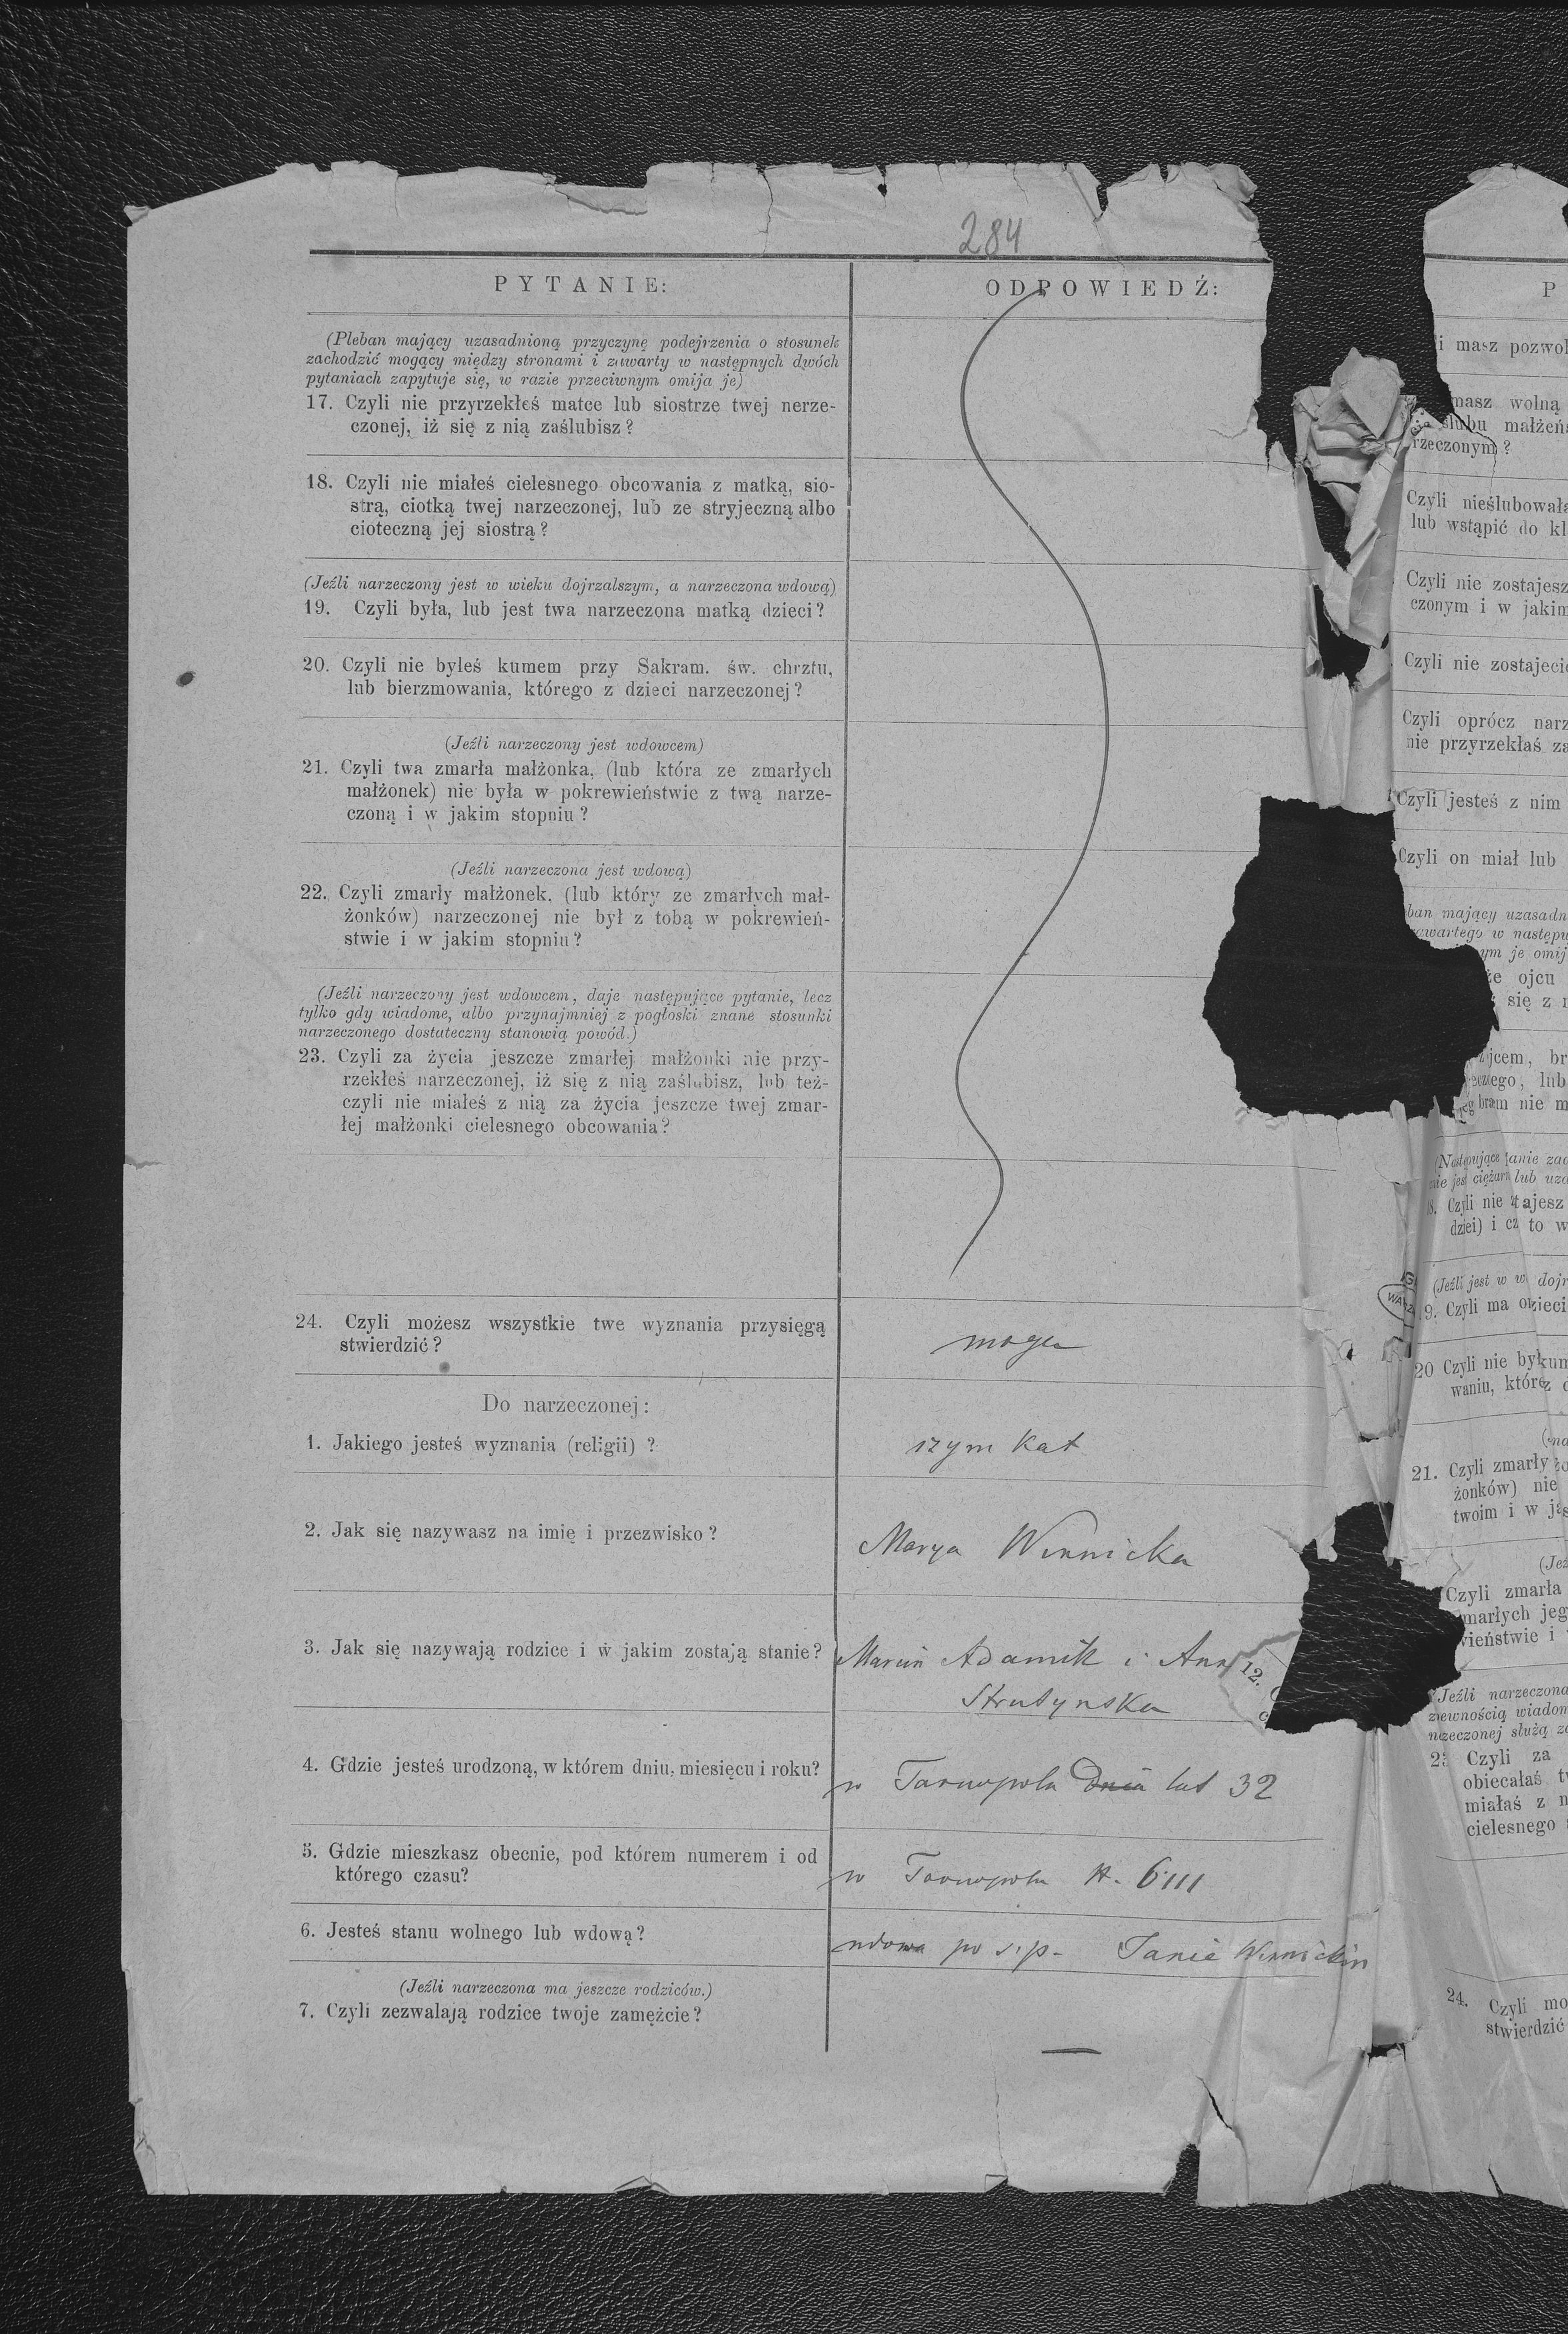 284
PYTANIE:
ODPOWIEDŹ:
(Pleban mający uzasadnioną przyczynę podejrzenia o stosunek
zachodzić mogący między stronami i zawarty w następnych dwóch
pytaniach zapytuje się, w razie przeciwnym omija je)
17. Czyli nie przyrzekłeś matce lub siostrze twej nerze-
czonej, iż się z nią zaślubisz?
18. Czyli nie miałeś cielesnego obcowania z matką, sio-
strą, ciotką twej narzeczonej, lub ze stryjeczną albo
cioteczną jej siostrą?
(Jeźli narzeczony jest w wieku dojrzalszym, a narzeczona wdową)
19. Czyli była, lub jest twa narzeczona matką dzieci?
20. Czyli nie byłeś kumem przy Sakram. św. chrztu,
lub bierzmowania, którego z dzieci narzeczonej?
(Jeźli narzeczony jest wdowcem)
21. Czyli twa zmarła małżonka, (lub która ze zmarłych
małżonek) nie była w pokrewieństwie z twą narze-
czoną i w jakim stopniu?
(Jeźli narzeczona jest wdową)
22. Czyli zmarły małżonek, (lub który ze zmarłych mał-
żonków) narzeczonej nie był z tobą w pokrewień-
stwie i w jakim stopniu?
(Jeźli narzeczony jest wdowcem, daje następujące pytanie, lecz
tylko gdy wiadome, albo przynajmniej z pogłoski znane stosunki
narzeczonego dostateczny stanowią powód.)
23. Czyli za życia jeszcze zmarłej małżonki nie przy-
rzekłeś narzeczonej, iż się z nią zaślubisz, lub też-
czyli nie miałeś z nią za życia jeszcze twej zmar-
łej małżonki cielesnego obcowania?
24. Czyli możesz wszystkie twe wyznania przysięgą
stwierdzić?
mogę
Do narzeczonej:
1. Jakiego jesteś wyznania (religii) ?
rzym kat
2. Jak się nazywasz na imię i przezwisko?
Marya Winnicka
3. Jak się nazywają rodzice i w jakim zostają stanie?
Marcin Adamik i Ann
Strutynska
4. Gdzie jesteś urodzoną, w którem dniu, miesięcu i roku?
w Tarnopolu Dnia lat 32
5. Gdzie mieszkasz obecnie, pod którem numerem i od
którego czasu?
w Tarnopolu
6. Jesteś stanu wolnego lub wdową?
wdowa po s.p. Janie Winnickim
(Jeźli narzeczona ma jeszcze rodziców.)
7. Czyli zezwalają rodzice twoje zamężcie?
12.
P
i masz pozwol
masz wolną
ślubu małżeńs
rzeczonym?
Czyli nieślubowała
lub wstąpić do kl
Czyli nie zostajesz
czonym i w jakim
Czyli nie zostajeci
Czyli oprócz narz
nie przyrzekłaś za
Czyli jesteś z nim
Czyli on miał lub
ban mający uzasadn
awartego w następu
ym je omij
że ojcu
się z n
jcem, br
lub
nie m
zac
lub uzo
Czyli nie tajesz
dziei) i cz to w
(Jeźli jest w w dojr
9. Czyli ma
20 Czyli nie
waniu,
21. Czyli zmarły
żonków) nie
twoim i w
(Jeź
Czyli zmarła
marłych jeg
wieństwie i
Jeźli narzeczona
wiadom
służą
Czyli za
obiecałaś t
miałaś z n
cielesnego
24. Czyli mo
stwierdzić